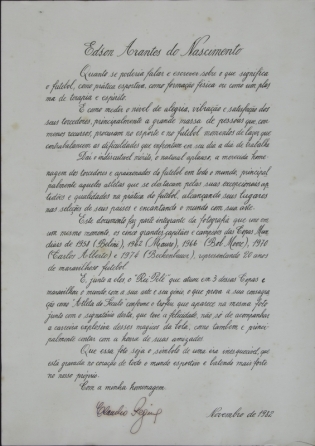 Edson Arantes do Nascimento
Quanto se poderia falar e escrever sobre o que significa
o futebol, como prática esportiva, como formação física ou como um plasma
de terapia e espírito.
E como medir o nível de alegria, vibração e satisfação dos
seus torcedores, principalmente a grande massa de pessoas que, com
menores recursos, procuram no esporte e no futebol momentos de lazer que
contrabalancem as dificuldades que enfrentam em seu dia a dia de batalha
Daí o indiscutível mérito, o natural aplauso, a merecida homenagem
dos torcedores e apaixonados do futebol em todo o mundo, principalmente
àqueles atletas que se destacam pelas suas excepcionais aptidões
e qualidades na prática do futebol, alcançando suas lugares
nas seleções de seus países e encantando o mundo com sua arte.
Este documento faz parte integrante da fotografia que une em
um mesmo momento, os cinco grandes capitães e campeões das Copas Mundiais
de 1958 (Belini), 1962 (Mauro), 1966 (Bob Moore), 1970
(Carlos Alberto) e 1974 (Beckenbauer), representando 20 anos
de maravilhoso futebol.
E junto a eles, o "Rei Pelé" que atuou em 3 dessas Copas e
maravilhou o mundo com a sua arte e seu gênio, e que prova a sua consagração
como "Atleta do Século" conforme o troféu que aparece na mesma foto
junto com o signatário desta, que teve a felicidade não só de acompanhar
a carreira explosiva desses magos da bola, como também e principalmente
contar com a honra de suas amizades.
Que essa foto seja o símbolo de uma era inesquecível, que
está gravada no coração de todo o mundo esportivo e batendo mais forte
no nosso próprio.
Com a minha homenagem
Novembro de 1982